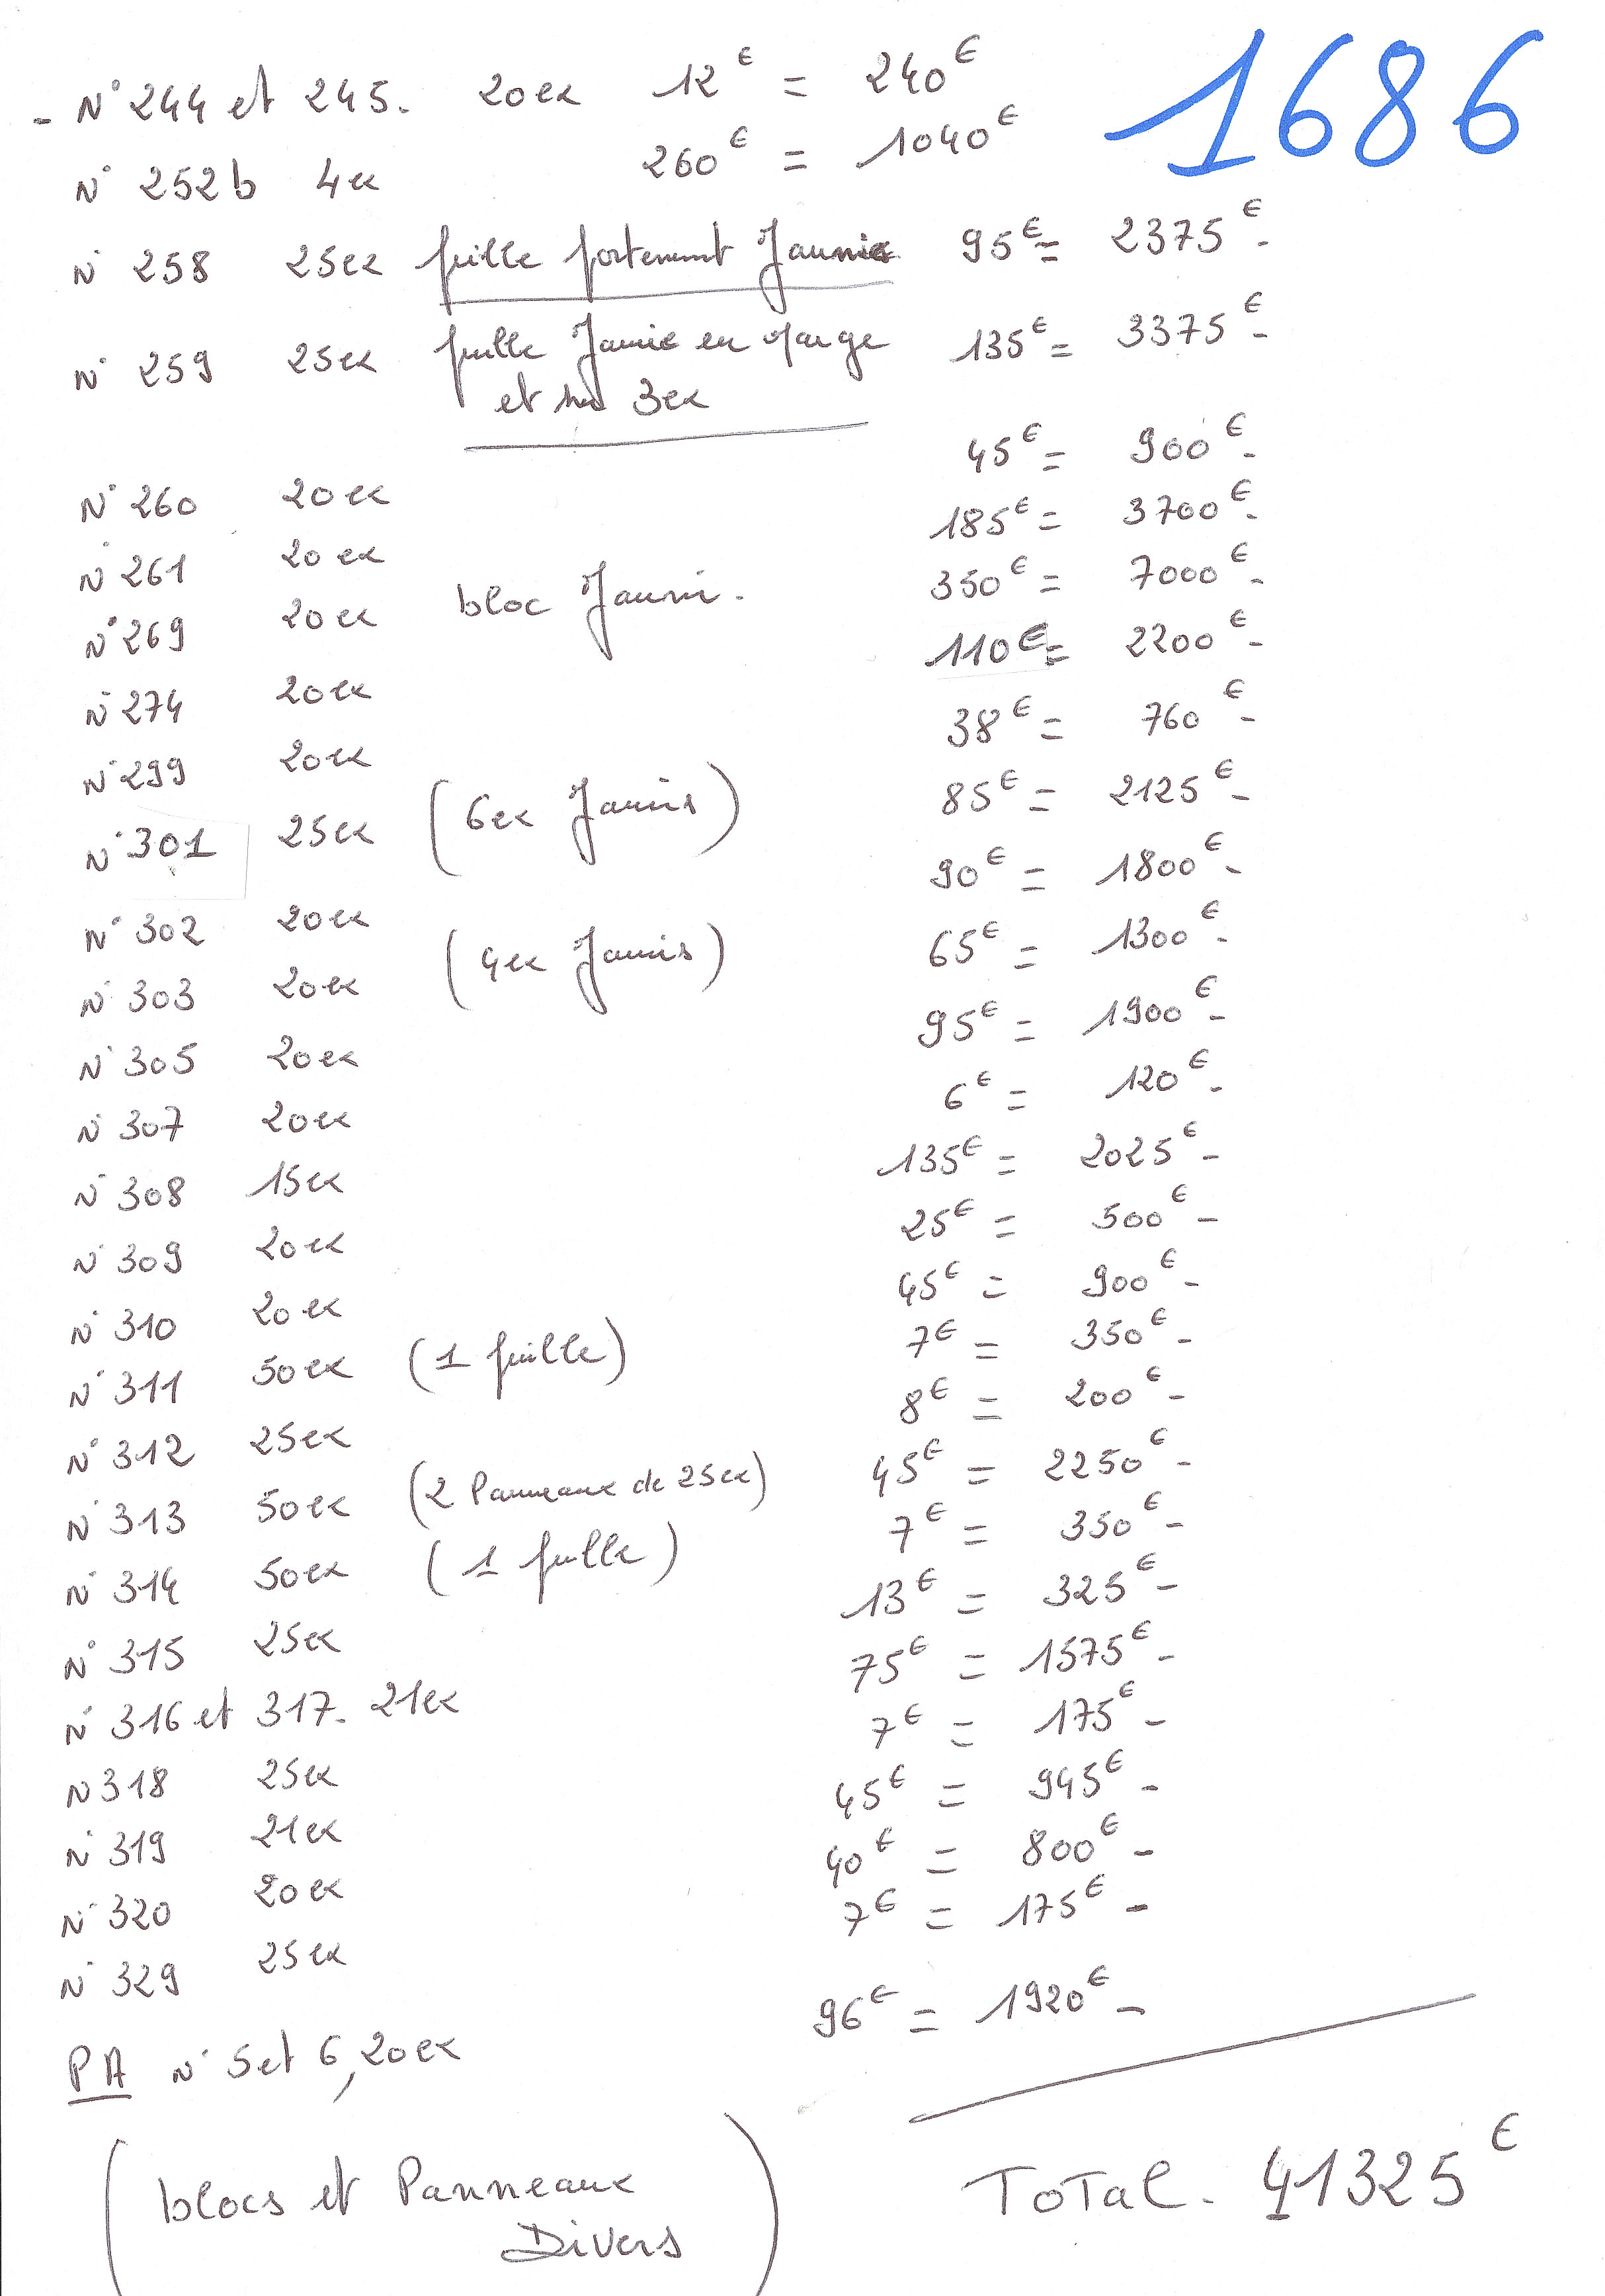 1686
- N° 244 et 245. 20ex 12€ = 240€
N° 252b 4ex 260€ = 1040€
N° 258 25ex feuille fortement Jaunie 95€ = 2375€-
N° 259 25ex feuille Jaunie en Marge 135€ = 3375€-
et sur 3ex
N° 260 20ex 45€ = 900€-
N° 261 20ex 185€ = 3700€-
N° 269 20ex bloc Jauni. 350€ = 7000€-
N° 274 20ex 110€ = 2200€-
N° 299 20ex 38€ = 760€-
N° 301 25ex (6ex Jaunis) 85€ = 2125€-
N° 302 20ex 90€ = 1800€-
N° 303 20ex (4ex Jaunis) 65€ = 1300€-
N° 305 20ex 95€ = 1900€-
N° 307 20ex 6€ = 120€-
N° 308 15ex 135€ = 2025€-
N° 309 20ex 25€ = 500€-
N° 310 20ex 45€ = 900€-
N° 311 50ex (1 feuille) 7€ = 350€-
N° 312 25ex 8€ = 200€-
N° 313 50ex (2 Panneaux de 25ex) 45€ = 2250€-
N° 314 50ex (1 feuille) 7€ = 350€-
N° 315 25ex 13€ = 325€-
N° 316 et 317. 21ex 75€ = 1575€-
N 318 25ex 7€ = 175€-
N° 319 21ex 45€ = 945€-
N° 320 20ex 40€ = 800€-
N° 329 25ex 7€ = 175€-
PA N° 5 et 6, 20ex 96€ = 1920€-
(blocs et Panneaux
Divers)
Total. 41325€